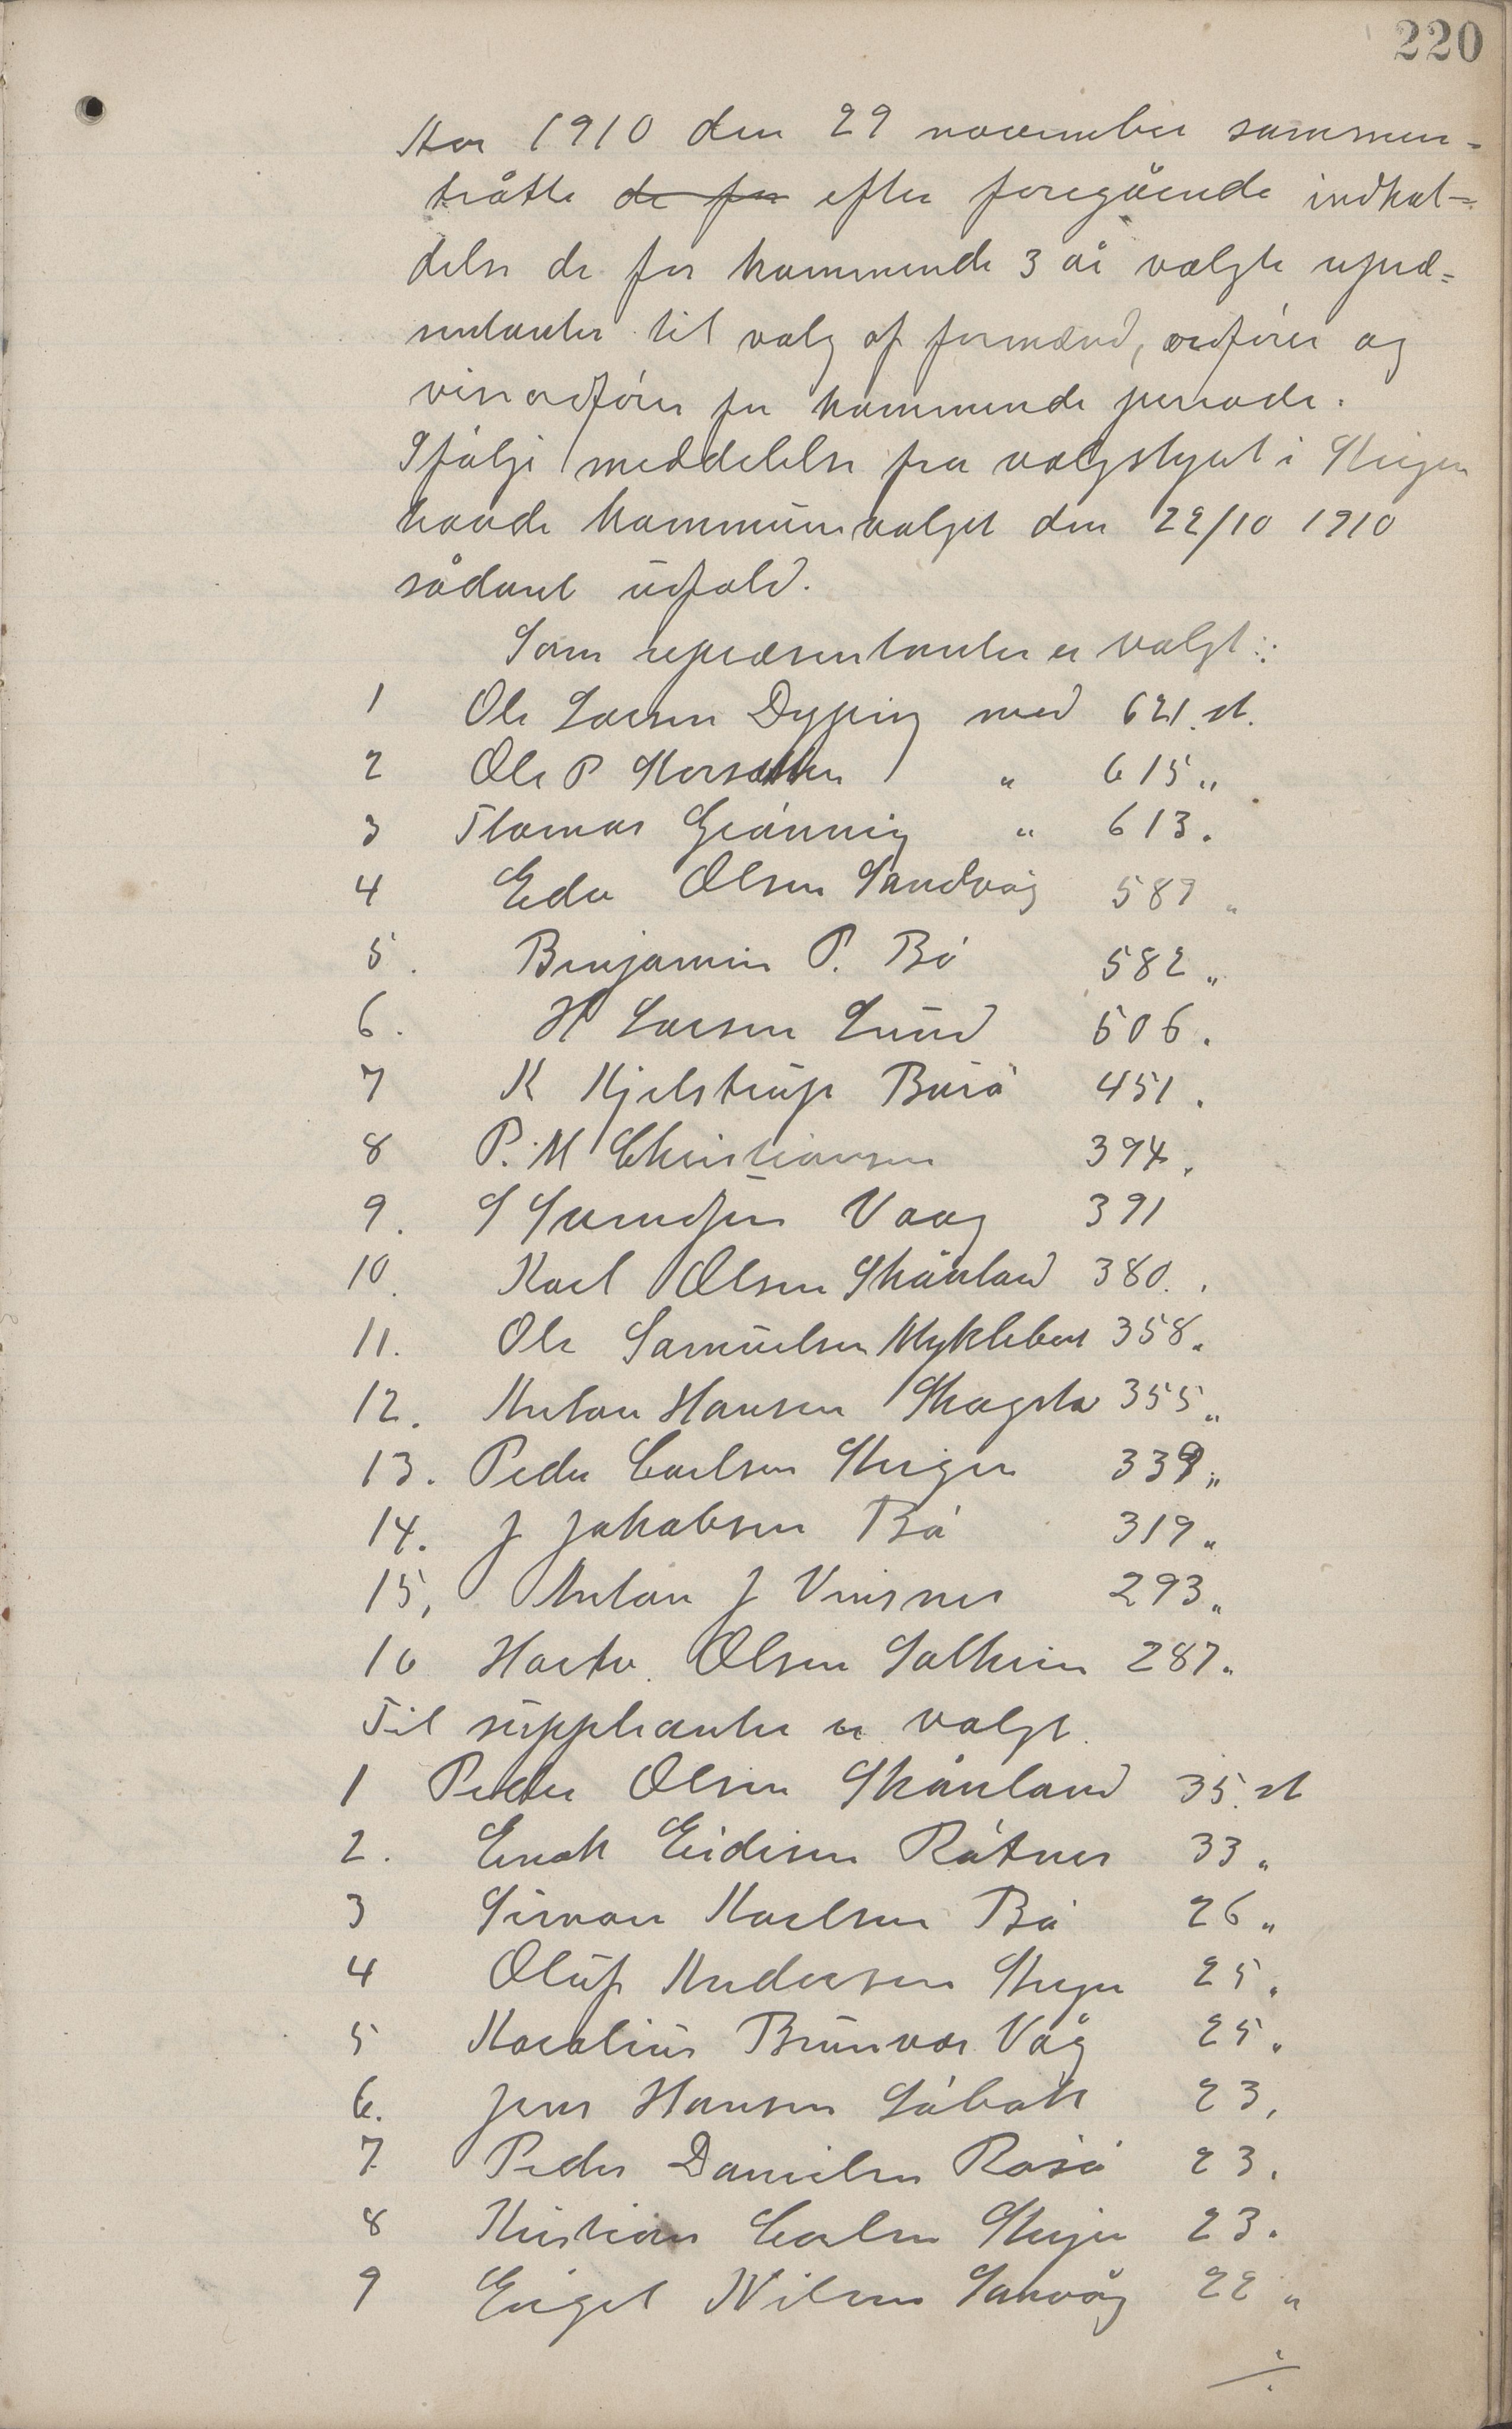 220
Aar 1910 den 29 november sammen-
trådte de for efter foregående indkal-
delse de for kommende 3 år valgte repræ-
sentanter til valg af formænd, ordfører og
viseordfører for kommende periode.
Ifølge meddelelse fra valgstyret i Steigen
havde kommunevalget den 22/10 1910
sådant udfald.
Som repræsentanter er valgt:
1 Ole Larsen Dyping med 621 st.
2 Ole P Korsatten " 615 "
3 Thomas Grønnig " 613 "
4 Edv Olsen Sandvåg 589 "
5. Benjamin P. Bø 582 "
6. H Larsen Lund 506 "
7 K Kjelstrup Burø 451 "
8 P. M Christiansen 394 "
9. S Svendsen Vaag 391
10. Karl Olsen Skånland 380 "
11. Ole Samuelsen Myklebost 358 "
12. Anton Hansen Skagsta 355 "
13. Peder Carlsen Steigen 339 "
14. J Jakobsen Bø 319 "
15, Anton J Vinsnes 293 "
16 Hartv. Olsen Solheim 287 "
Til suppleanter er valgt.
1 Peder Olsen Skånland 35 st
2. Enok Eidisen Røtnes 33 "
3 Simon Karlsen Bø 26 "
4 Oluf Andersen Steigen 25 "
5 Karolius Brunvær Våg 25 "
6. Jens Hansen Løbak 23 "
7 Peder Danielsen Rosø 23 "
8 Kristian Carlsen Steigen 23 "
9 Eigel Nilsen Sanvåg 22 "
./.